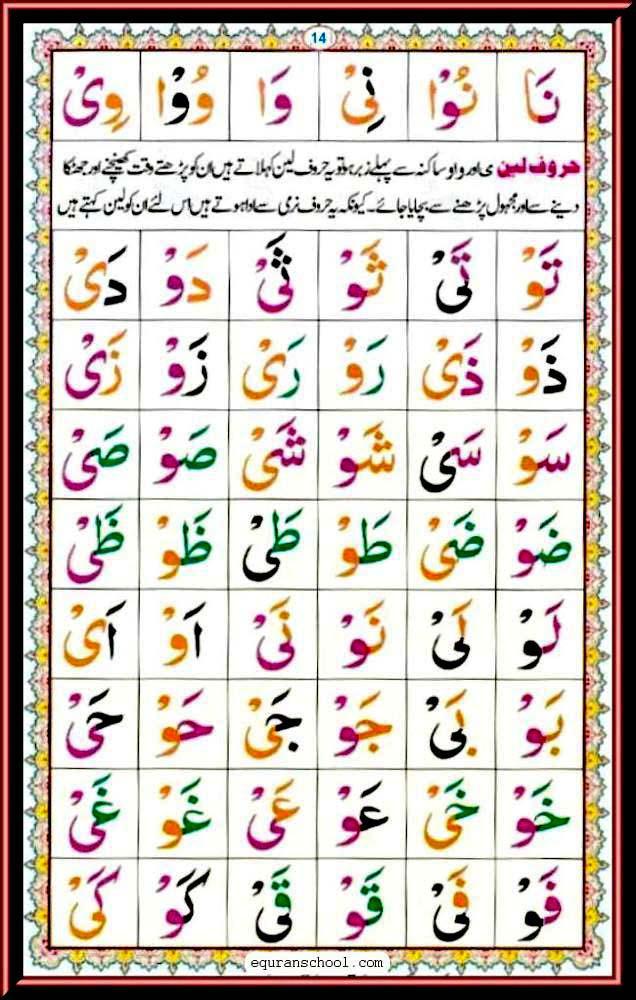 14
نَا نُوْا نِیْ وَا وُوْا وِیْ
حروف لین ی اور واؤ ساکنہ سے پہلے زبر ہو تو یہ حروف لین کہلاتے ہیں ان کو پڑھتے وقت کھینچنے اور جھٹکا
دینے سے اور مجہول پڑھنے سے بچایا جائے۔ کیونکہ یہ حروف نرمی سے ادا ہوتے ہیں اس لئے ان کو لین کہتے ہیں
تَوْ تَیْ ثَوْ ثَیْ دَوْ دَیْ
ذَوْ ذَیْ رَوْ رَیْ زَوْ زَیْ
سَوْ سَیْ شَوْ شَیْ صَوْ صَیْ
ضَوْ ضَیْ طَوْ طَیْ ظَوْ ظَیْ
لَوْ لَیْ نَوْ نَیْ اَوْ اَیْ
بَوْ بَیْ جَوْ جَیْ حَوْ حَیْ
خَوْ خَیْ عَوْ عَیْ غَوْ غَیْ
فَوْ فَیْ قَوْ قَیْ کَوْ کَیْ
equranschool.com